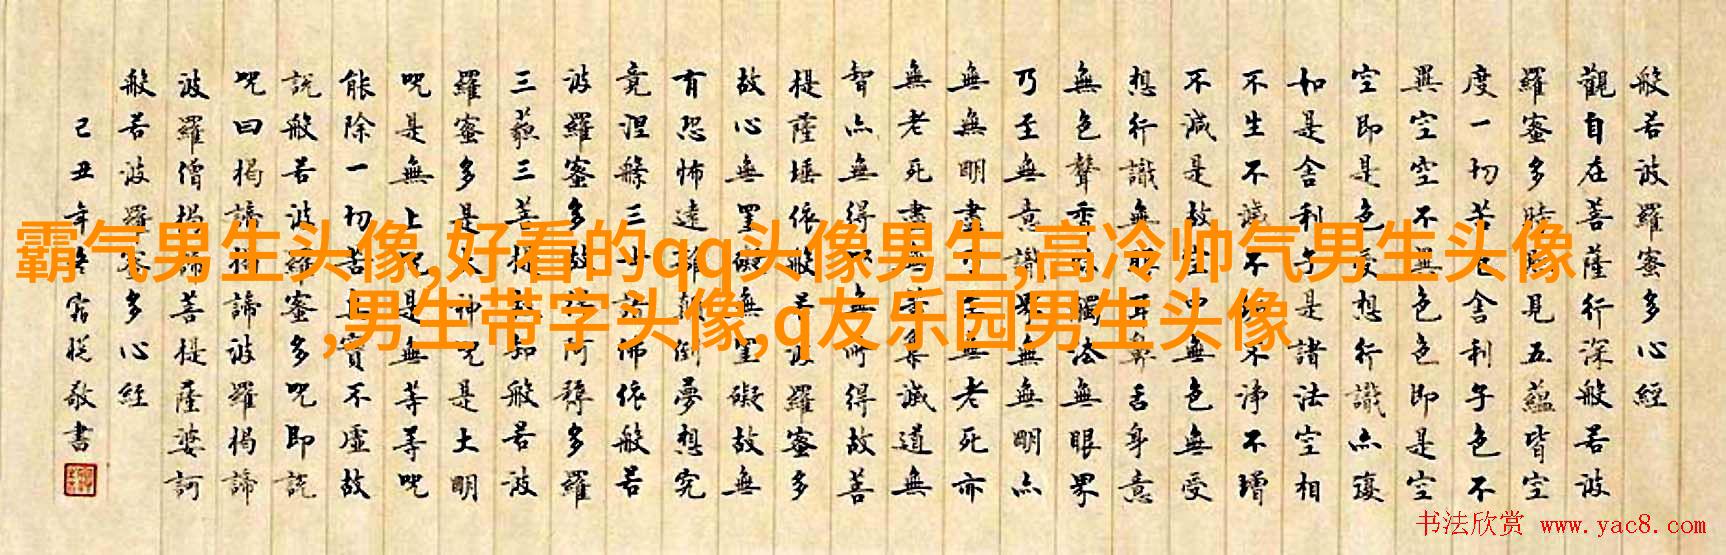 霸气男生头像,好看的qq头像男生,高冷帅气男生头像
,男生带字头像,q友乐园男生头像
般若波羅蜜多心經
觀自在菩薩行深般若波
羅蜜多時照見五蘊皆空
度一切苦厄舍利子色不
異空空不異色色即是空
空即是色受想行識亦復
如是舍利子是諸法空相
不生不滅不垢不淨不增
不減是故空中無色無受
想行識無眼耳鼻舌身意
無色聲香味觸法無眼界
乃至無意識界無無明亦
無無明盡乃至無老死亦
無老死盡無苦集滅道無
智亦無得以無所得故菩
提薩埵依般若波羅蜜多
故心無罣礙無罣礙故無
有恐怖遠離顛倒夢想究
竟涅槃三世諸佛依般若
波羅蜜多故得阿耨多羅
三藐三菩提故知般若波
羅蜜多是大神咒是大明
咒是無上咒是無等等咒
能除一切苦真實不虛故
說般若波羅蜜多咒即說
咒曰揭諦揭諦波羅揭諦
波羅僧揭諦菩提薩婆訶
般若波羅蜜多心經
己丑年敬書
书法欣赏 www.yac8.com